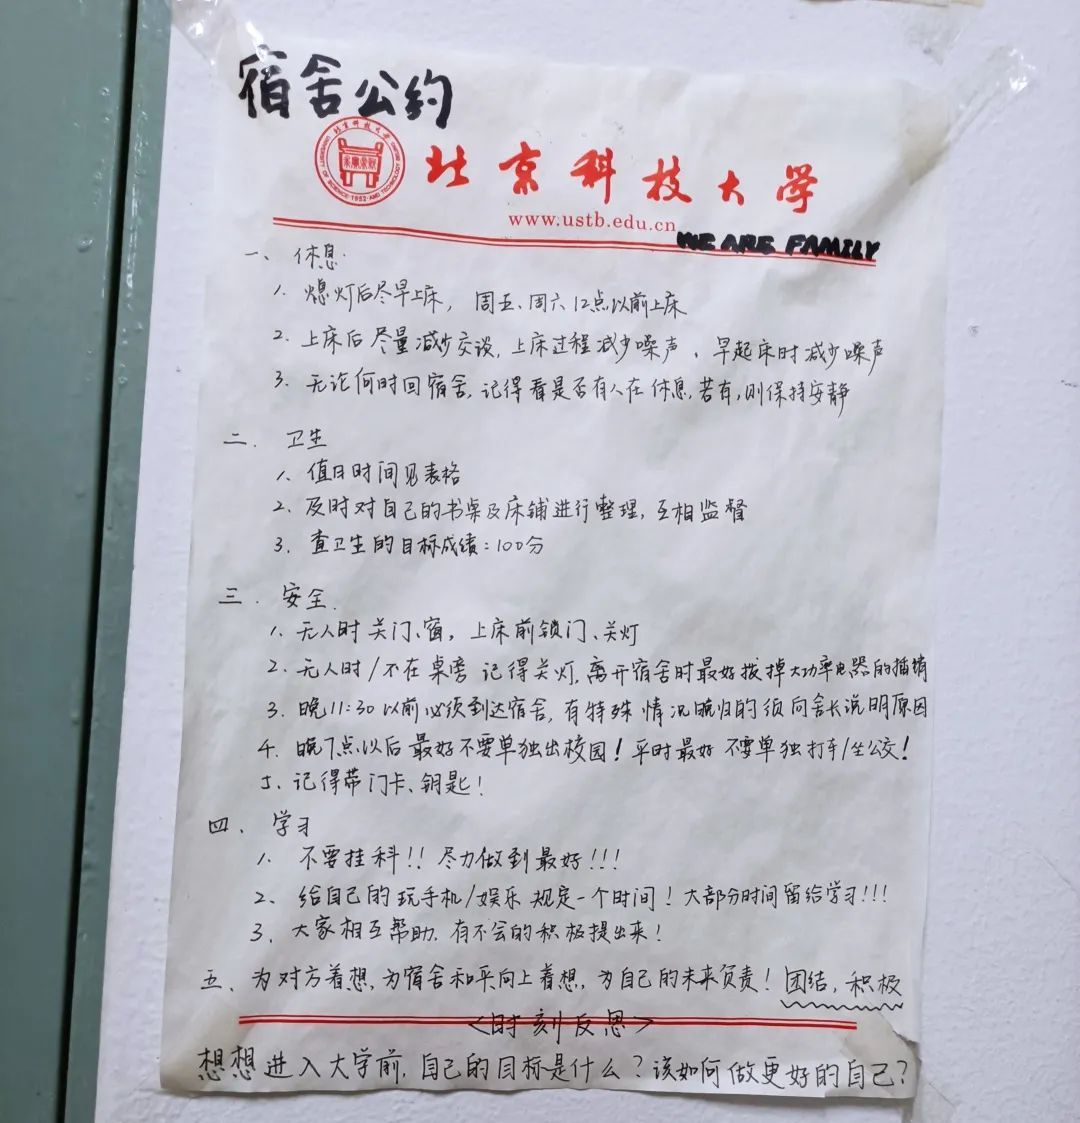 宿舍公约
北京科技大学
www.ustb.edu.cn
WE ARE FAMILY
一、休息:
1. 熄灯后尽早上床, 周五、周六12点以前上床
2. 上床后尽量减少交谈, 上床过程减少噪声、早起床时减少噪声
3. 无论何时回宿舍, 记得看是否有人在休息, 若有, 则保持安静
二. 卫生
1. 值日时间见表格
2. 及时对自己的书桌及床铺进行整理, 互相监督
3. 查卫生的目标成绩: 100分
三. 安全.
1. 无人时关门、窗, 上床前锁门、关灯
2. 无人时/不在桌旁 记得关灯, 离开宿舍时最好拔掉大功率电器的插销
3. 晚11:30以前必须到达宿舍, 有特殊情况晚归的须向舍长说明原因
4. 晚7点以后最好不要单独出校园! 平时最好不要单独打车/坐公交!
5. 记得带门卡、钥匙!
四、学习
1. 不要挂科!! 尽力做到最好!!!
2. 给自己的玩手机/娱乐规定一个时间! 大部分时间留给学习!!!
3. 大家相互帮助. 有不会的积极提出来!
五、为对方着想, 为宿舍和平向上着想, 为自己的未来负责! 团结, 积极
<时刻反思>
想想进入大学前, 自己的目标是什么? 该如何做更好的自己?